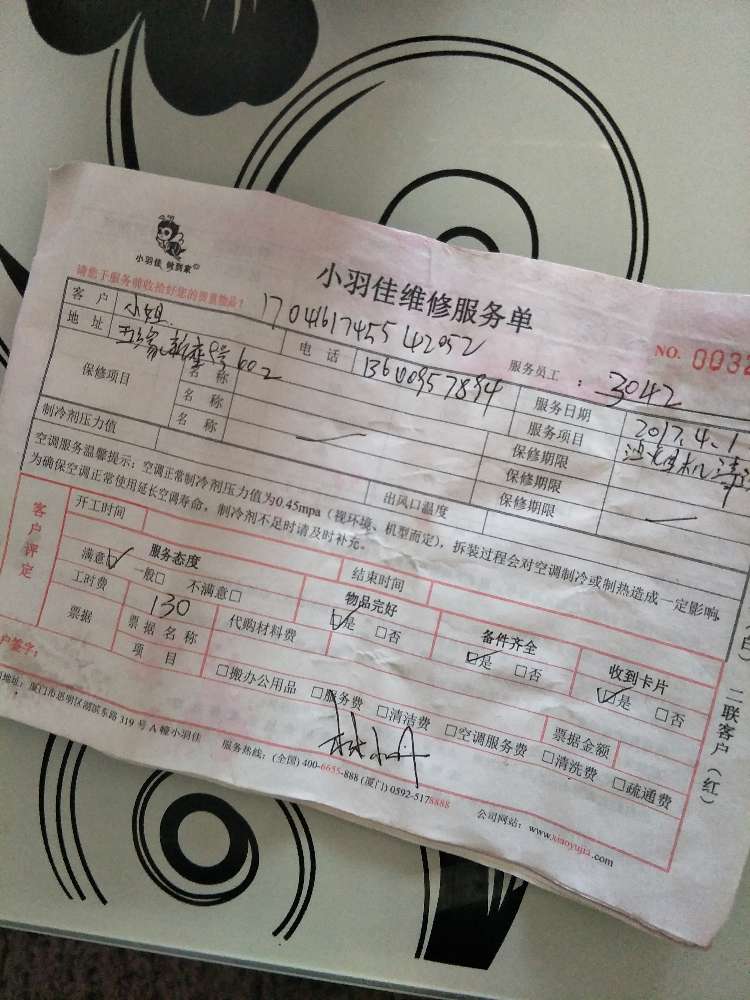 小羽佳 做到家©
小羽佳维修服务单
请您于服务前收拾好您的贵重物品！
NO. 003
客户 小姐 17041617455 42052 服务员工：3042
地址 8号602 电话 13600957894 服务日期 2017.4.1
保修项目 名称 服务项目 机清
名称 保修期限
名称 保修期限
制冷剂压力值 出风口温度 保修期限
空调服务温馨提示：空调正常制冷剂压力值为0.45mpa（视环境、机型而定），拆装过程会对空调制冷或制热造成一定影响，
为确保空调正常使用延长空调寿命，制冷剂不足时请及时补充。
客户评定
开工时间 结束时间
服务态度 物品完好 备件齐全 收到卡片
满意☑ 一般□ 不满意□ ☑是 □否 ☑是 □否 ☑是 □否
工时费 130 代购材料费 票据金额
票据 票据名称
项目 □搬办公用品 □服务费 □清洁费 □空调服务费 □清洗费 □疏通费
户签字：
地址：厦门市思明区湖滨东路 319 号 A 幢小羽佳 服务热线：(全国) 400-6655-888 (厦门) 0592-5178888 公司网站：www.xiaoyujia.com
白）
二联客户（红）